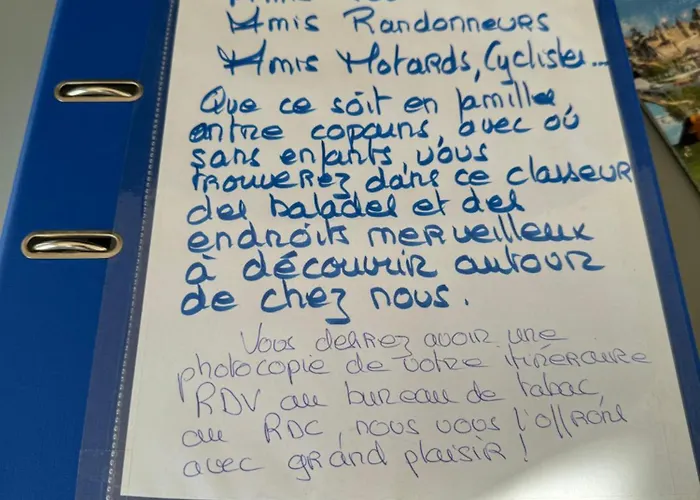 Amis Randonneurs
Amis Motards, Cyclistes...
Que ce soit en famille,
entre copains, avec où
sans enfants, vous
trouverez dans ce classeur
des balades et des
endroits merveilleux
à découvrir autour
de chez nous.
Vous desirez avoir une
photocopie de votre itineraire
RDV au bureau de tabac,
au RDC, nous vous l'offrons
avec grand plaisir !